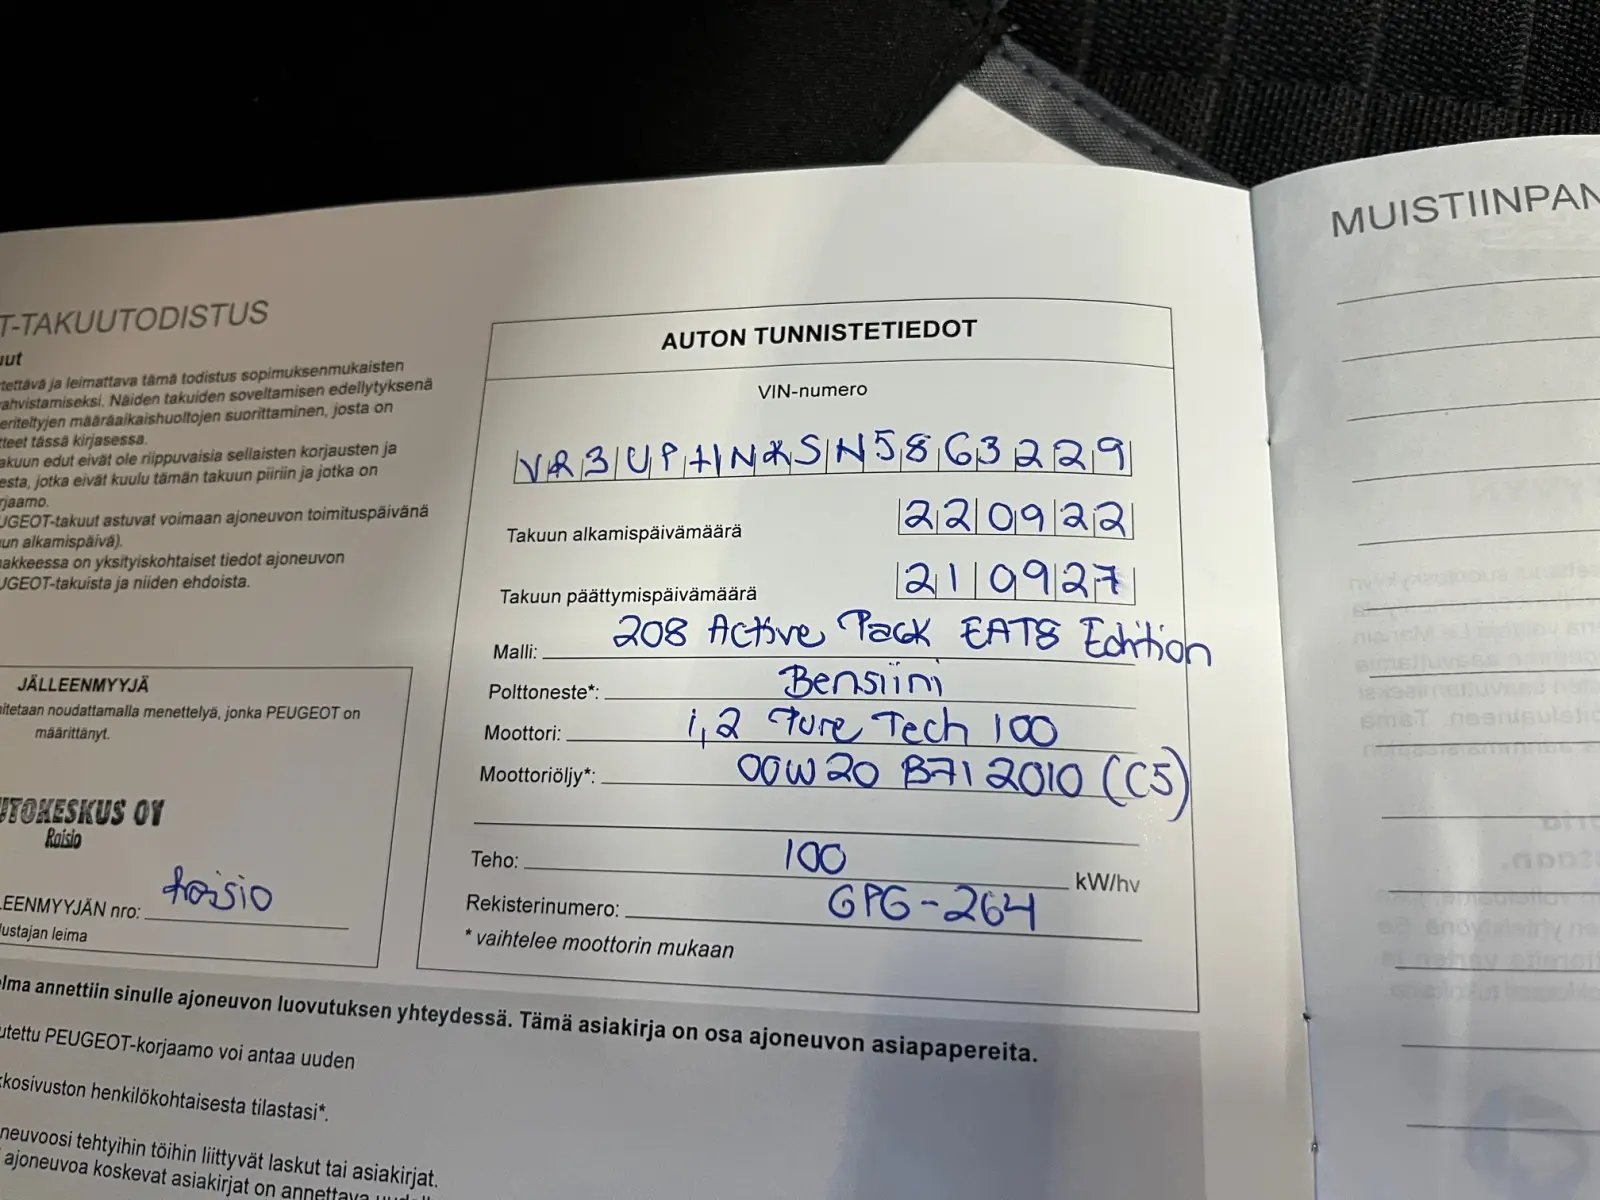 MUISTIINPAN
T-TAKUUTODISTUS
uut
tettävä ja leimattava tämä todistus sopimuksenmukaisten
ahvistamiseksi. Näiden takuiden soveltamisen edellytyksenä
eriteltyjen määräaikaishuoltojen suorittaminen, josta on
tteet tässä kirjasessa.
akuun edut eivät ole riippuvaisia sellaisten korjausten ja
esta, jotka eivät kuulu tämän takuun piiriin ja jotka on
rjaamo.
UGEOT-takuut astuvat voimaan ajoneuvon toimituspäivänä
un alkamispäivä).
akkeessa on yksityiskohtaiset tiedot ajoneuvon
UGEOT-takuista ja niiden ehdoista.
JÄLLEENMYYJÄ
itetaan noudattamalla menettelyä, jonka PEUGEOT on
määrittänyt.
UTOKESKUS OY
Raisio
LEENMYYJÄN nro: Raisio
lustajan leima
AUTON TUNNISTETIEDOT
VIN-numero
VR3UPHNKSN5863229
Takuun alkamispäivämäärä 220922
Takuun päättymispäivämäärä 210927
Malli: 208 Active Pack EAT8 Edition
Polttoneste*: Bensiini
Moottori: 1,2 Pure Tech 100
Moottoriöljy*: 00W20 B71 2010 (C5)
Teho: 100 kW/hv
Rekisterinumero: GPG-264
* vaihtelee moottorin mukaan
lma annettiin sinulle ajoneuvon luovutuksen yhteydessä. Tämä asiakirja on osa ajoneuvon asiapapereita.
utettu PEUGEOT-korjaamo voi antaa uuden
kosivuston henkilökohtaisesta tilastasi*.
neuvoosi tehtyihin töihin liittyvät laskut tai asiakirjat.
ajoneuvoa koskevat asiakirjat on annettava